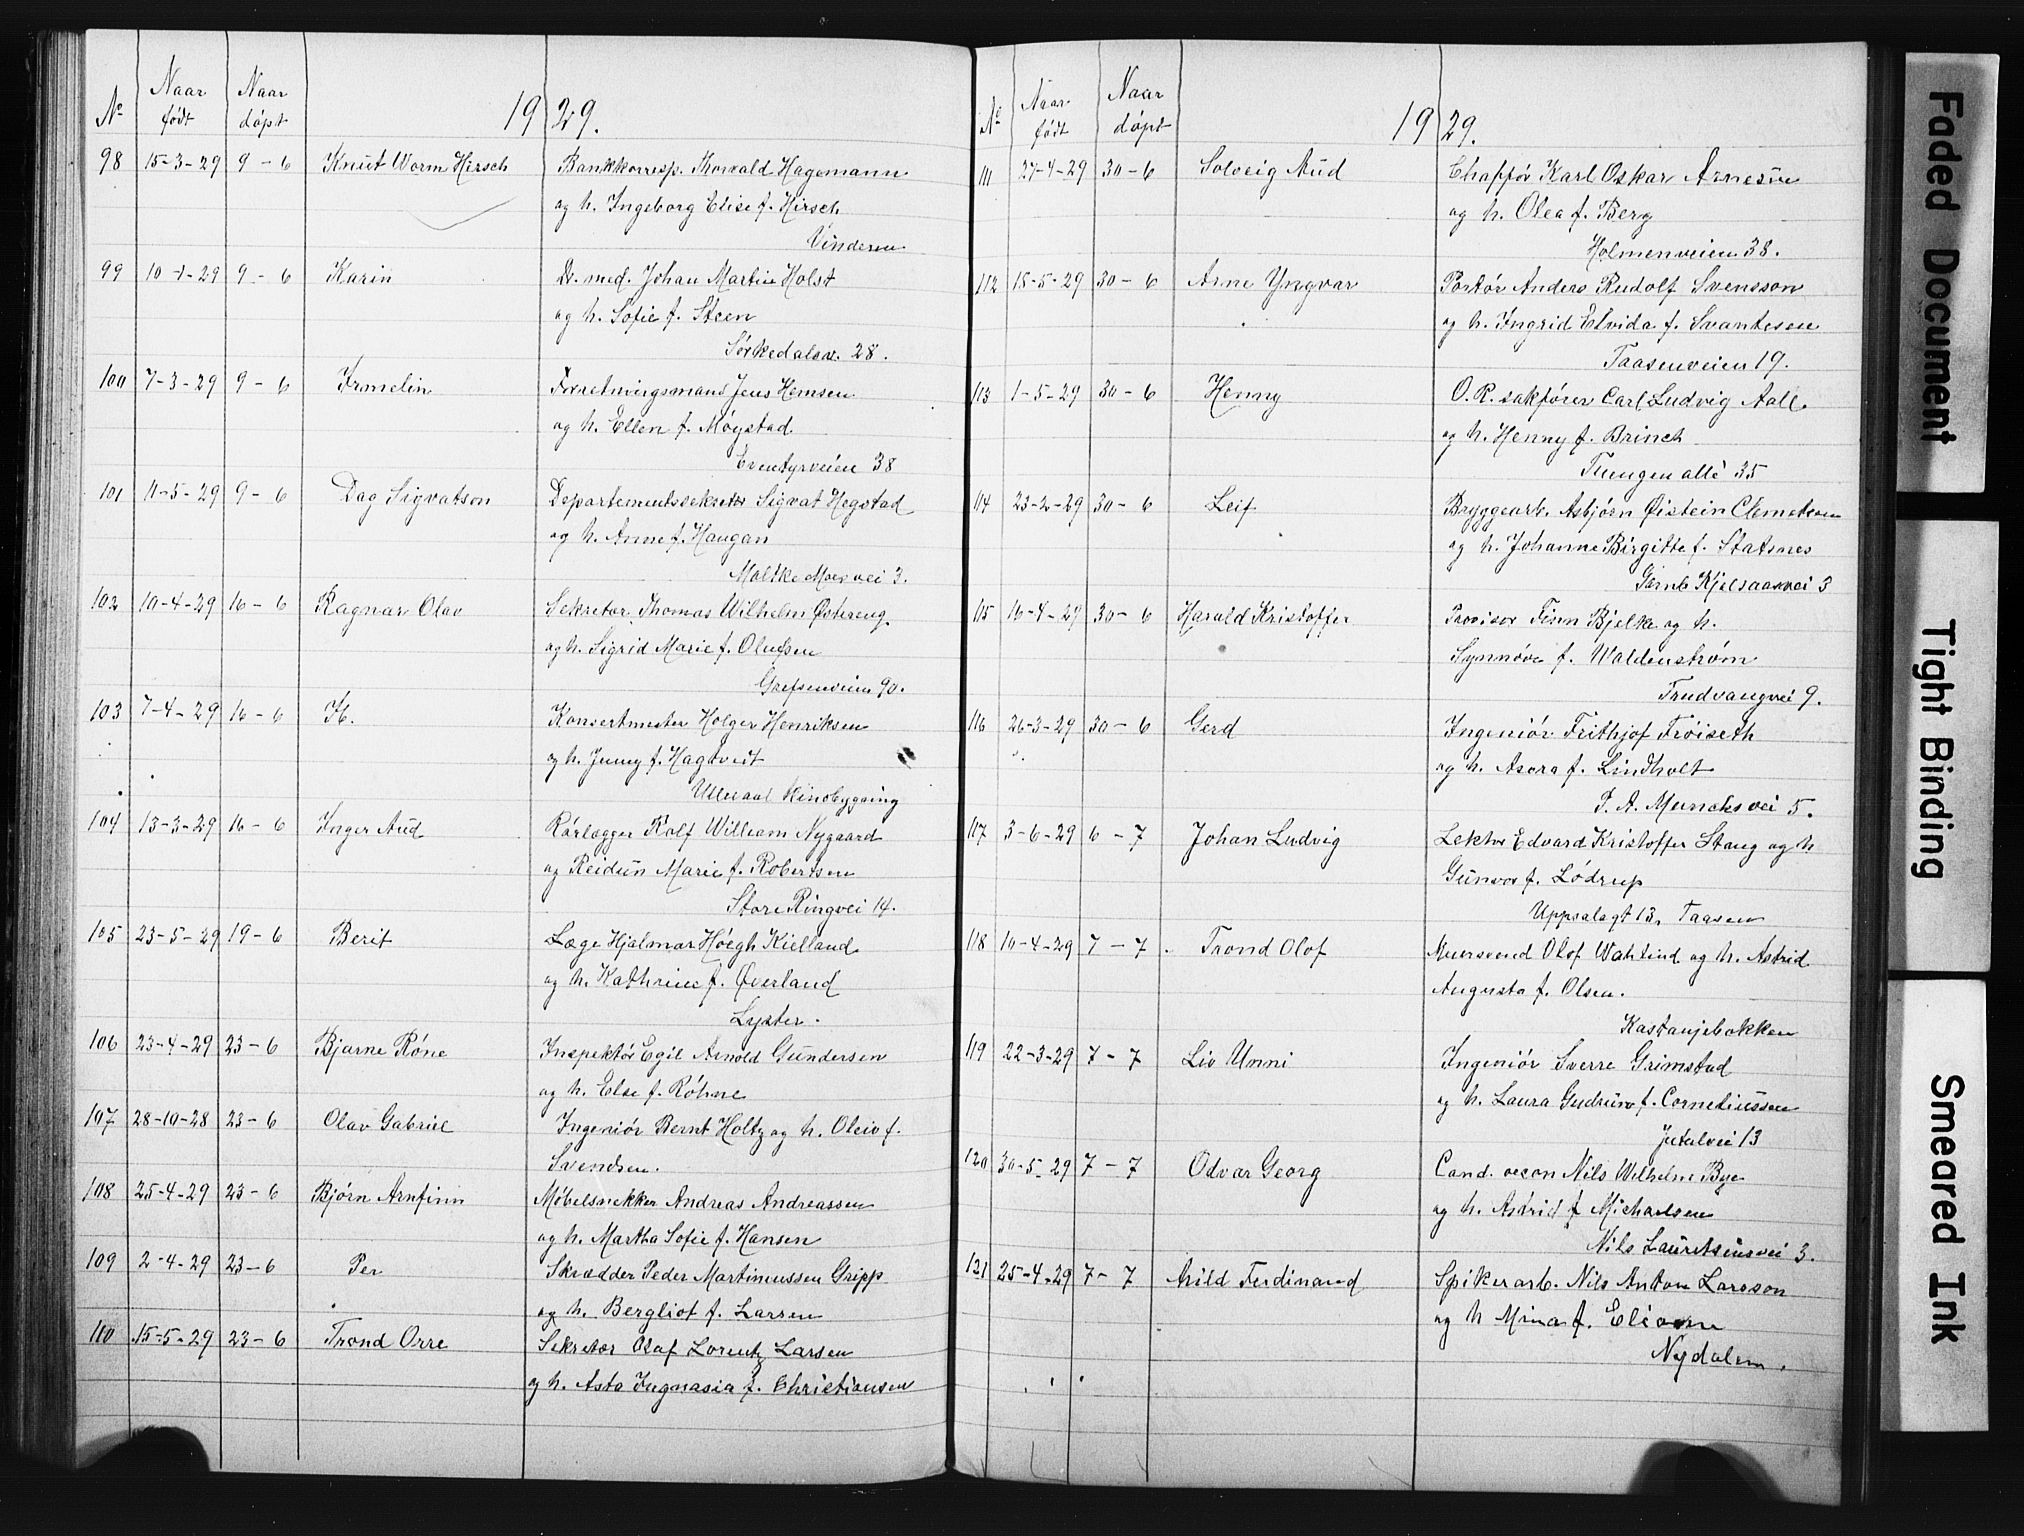 No Naar født Naar døpt 19 29.
98 15-3-29 9-6 Knut Worm Hirsch Bankkorresp. Thorvald Hagemann
og h. Ingeborg Elise f. Hirsch
Vinderen
99 10-1-29 9-6 Karin Dr. med. Johan Martin Holst
og h. Sofie f. Steen
Sørkedalsv. 28.
100 7-3-29 9-6 Irmelin Jens Hemsen
og h. Ellen f. Møystad
Eventyrveien 38
101 11-5-29 9-6 Dag Sigvatson Departementssekretær Sigvat Hegstad
og h. Anne f. Haugan
Moltke Moes vei 3.
102 10-4-29 16-6 Ragnar Olav Sekretær Thomas Wilhelm Østereng.
og h. Sigrid Marie f. Olufsen
Grefsenveien 90.
103 7-4-29 16-6 Konsertmester Holger Henriksen
og h. Jenny f. Hagtvedt
Ullevaal Kinobygning
104 13-3-29 16-6 Inger Aud Rørlægger Rolf William Nygaard
og Reidun Marie f. Robertsen
Store Ringvei 14.
105 23-5-29 19-6 Berit Læge Hjalmar Høegh Kielland
og h. Kathrine f. Øverland
Lyster.
106 23-4-29 23-6 Bjarne Röne Inspektör Egil Arnold Gundersen
og h. Else f. Röhne
107 28-10-28 23-6 Olav Gabriel Ingeniör Bernt Holtz og h. Oleiv f.
Svendsen.
108 25-4-29 23-6 Bjørn Arnfinn Møbelsnekker Andreas Andreassen
og h. Martha Sofie f. Hansen
109 2-4-29 23-6 Per Skrædder Peder Martinussen Gripp
og h. Bergliot f. Larsen
110 15-5-29 23-6 Trond Orre Sekretær Olaf Lorentz Larsen
og h. Asta f. Christiansen
No Naar født Naar døpt 19 29.
111 27-4-29 30-6 Solveig Aud Chaffør Karl Oskar Arnesen
og h. Olea f. Berg
Holmenveien 38.
112 18-5-29 30-6 Arne Yngvar Portör Anders Rudolf Svensson
og h. Ingrid Elvida f. Svantesen
Taasenveien 19.
113 1-5-29 30-6 Henny O. R. sakfører Carl Ludvig Aall.
og h. Henny f. Brinch
Tuengen allé 35
114 23-2-29 30-6 Leif Bryggearb. Asbjørn Øistein Clemetsen
og h. Johanne Birgitte f. Statsnes
Gamle Kjelsaasvei 3
115 16-4-29 30-6 Harald Kristoffer Provisor Finn Bjelke og h.
Synnøve f. Waldenstrøm
Trudvangvei 9.
116 26-3-29 30-6 Gerd Ingeniör Frithjof Fröiseth
og h. Asora f. Lindholt
P. A. Munchs vei 5.
117 3-6-29 6-7 Johan Ludvig Lektor Edvard Kristoffer Stang og h
Gunvor f. Lödrup
Uppsalagt 13, Taasen
118 10-4-29 7-7 Trond Olof Murersvend Olof Wahlind og h. Astrid
Augusta f. Olsen.
Kastanjebakken
119 22-3-29 7-7 Liv Unni Ingeniör Sverre Grimstad
og h. Laura Gudrun f. Corneliussen
Jutulvei 13
120 30-5-29 7-7 Odvar Georg Cand. oecon Nils Wilhelm Bye
og h. Astrid f Michaelsen
Nils Lauritsensvei 3.
121 25-4-29 7-7 Arild Ferdinand Spikerarb. Nils Anton Larsson
og h Mina f.
Nydalen.
Faded Document
Tight Binding
Smeared Ink